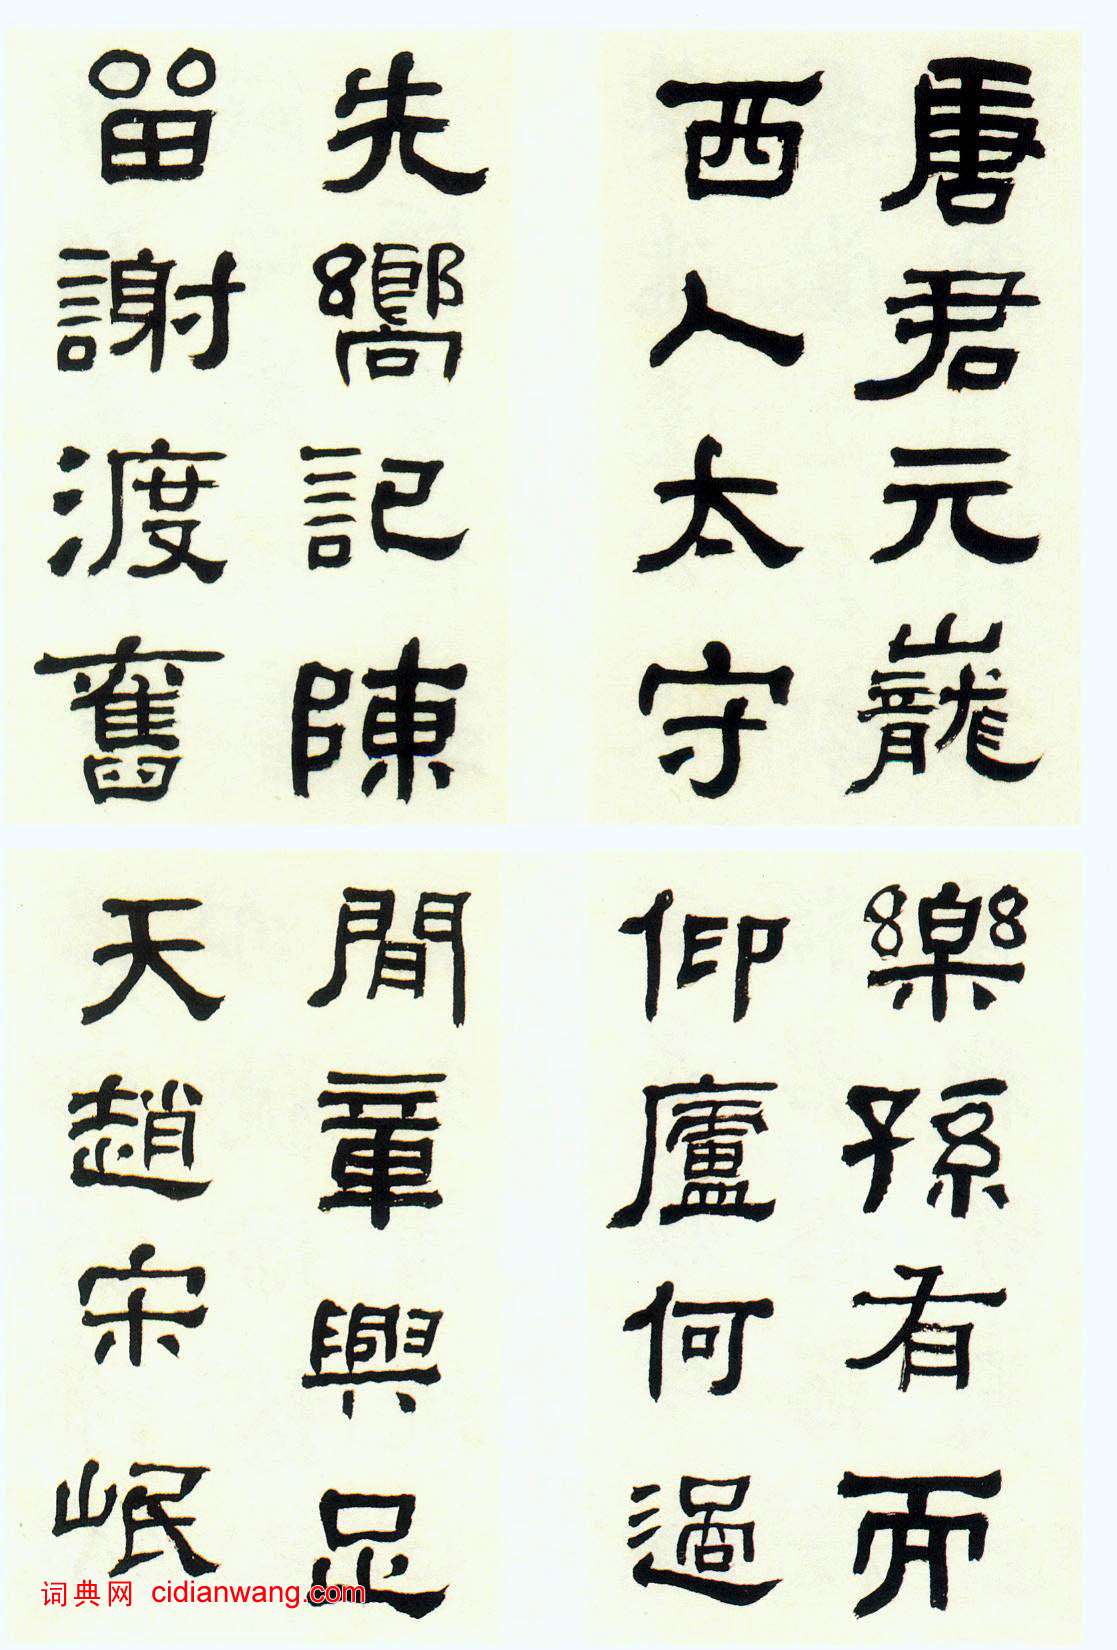 唐君元巃
西人太守
先嚮記陳
留謝渡奮
樂孫有而
仰廬何過
閒章興足
天趙宋岷
词典网 cidianwang.com